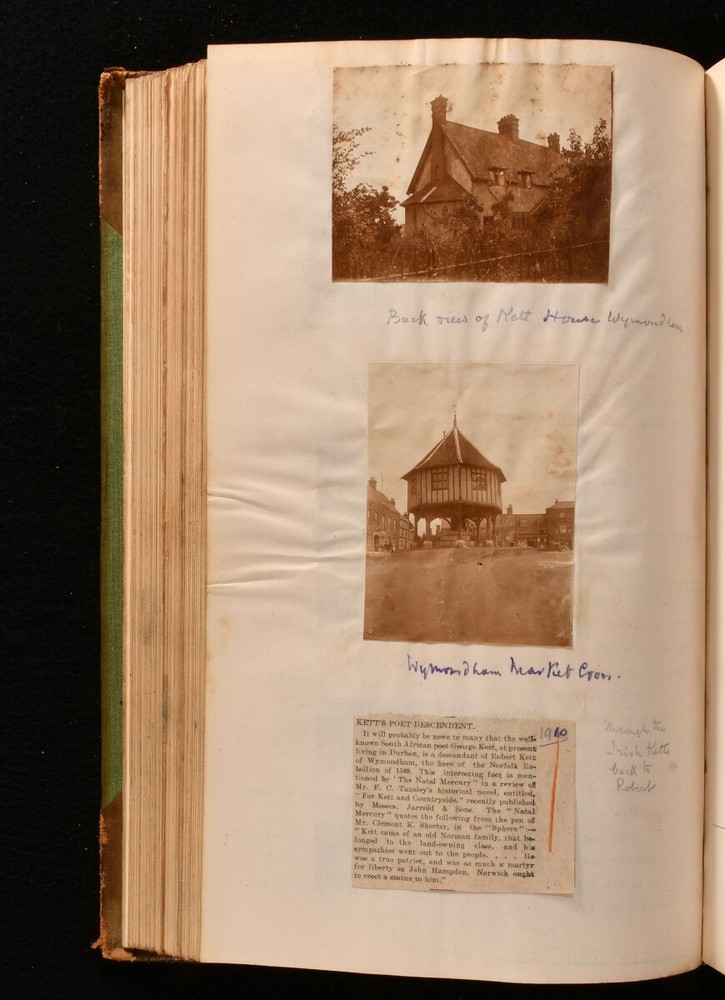 Back view of Kett House Wymondham
Wymondham Market Cross.
KETT'S POET DESCENDENT.
It will probably be news to many that the well-
known South African poet George Kett, at present
living in Durban, is a descendant of Robert Kett
of Wymondham, the hero of the Norfolk Re-
bellion of 1549. This interesting fact is men-
tioned by "The Natal Mercury" in a review of
Mr. F. C. Tansley's historical novel, entitled,
"For Kett and Countryside," recently published
by Messrs. Jarrold & Sons. The "Natal
Mercury" quotes the following from the pen of
Mr. Clement K. Shorter, in the "Sphere":—
"Kett came of an old Norman family, that be-
longed to the land-owning class, and his
sympathies went out to the people. . . . He
was a true patriot, and was as much a martyr
for liberty as John Hampden. Norwich ought
to erect a statue to him."
1910
Through the
Irish Ketts
back to
Robert